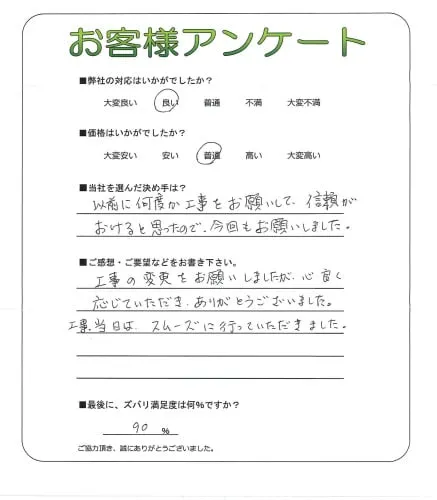 お客様アンケート
■弊社の対応はいかがでしたか？
大変良い 良い 普通 不満 大変不満
■価格はいかがでしたか？
大変安い 安い 普通 高い 大変高い
■当社を選んだ決め手は？
以前に何度か工事をお願いして、信頼が
おけると思ったので、今回もお願いしました。
■ご感想・ご要望などをお書き下さい。
工事の変更をお願いしましたが、心良く
応じていただき、ありがとうございました。
工事当日は、スムーズに行っていただきました。
■最後に、ズバリ満足度は何%ですか？
90 %
ご協力頂き、誠にありがとうございました。